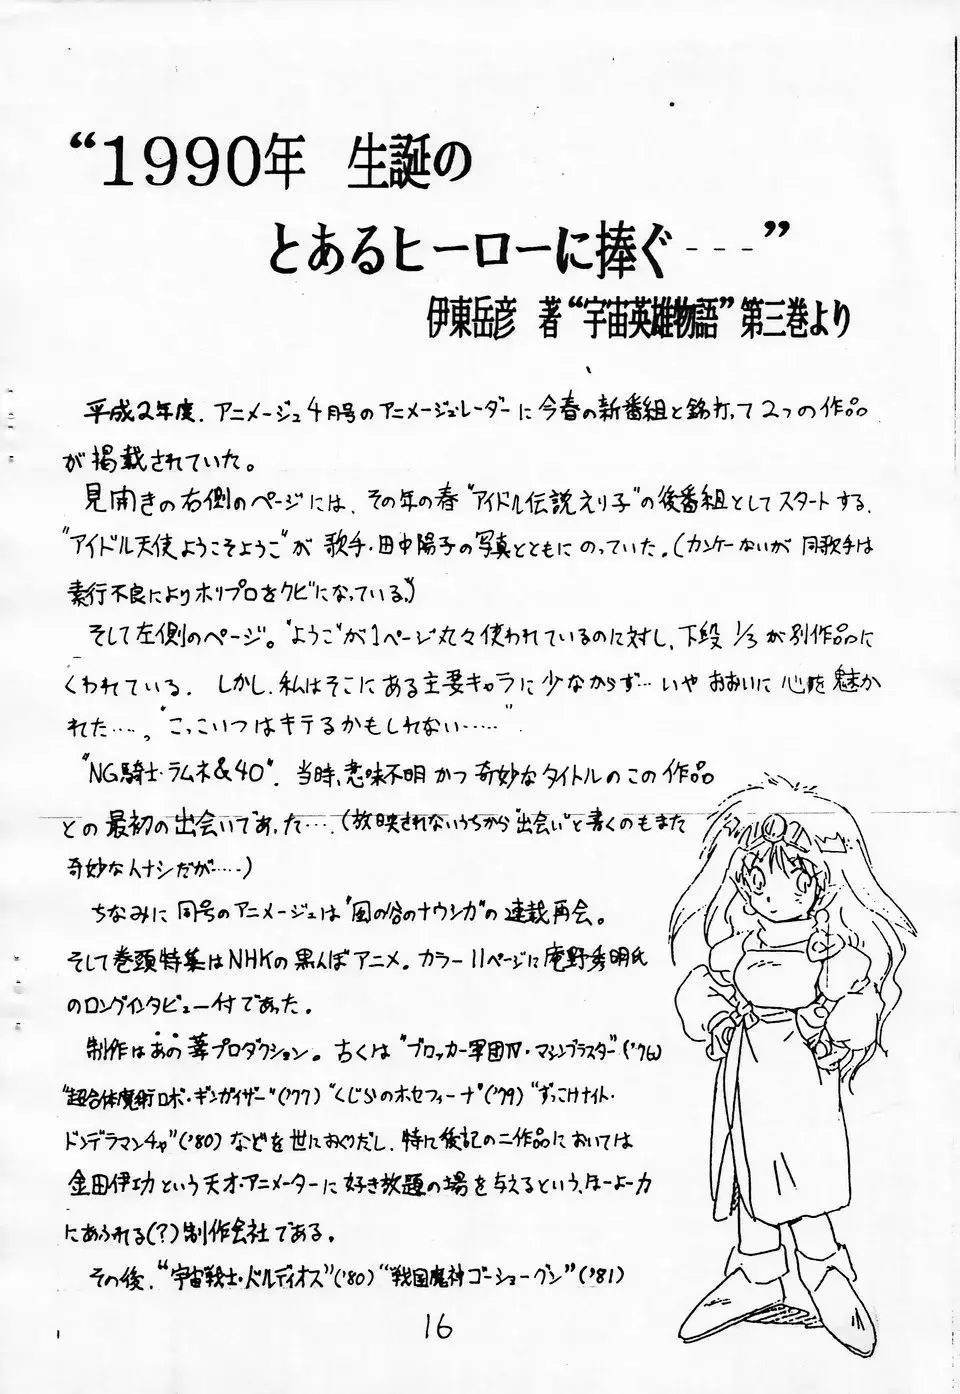 “1990年 生誕の
とあるヒーローに捧ぐ---”
伊東岳彦 著“宇宙英雄物語”第三巻より
平成2年度、アニメージュ4月号のアニメージュレーダーに今春の新番組と銘打って2つの作品
が掲載されていた。
見開きの右側のページには、その年の春“アイドル伝説えり子”の後番組としてスタートする、
“アイドル天使ようこそようこ”が歌手・田中陽子の写真とともにのっていた。(カンケーないが同歌手は
素行不良によりホリプロをクビになっている。)
そして左側のページ。“ようこ”が1ページ丸々使われているのに対し、下段1/3が別作品に
くわれている。しかし、私はそこにある主要キャラに少なからず…いやおおいに心を魅か
れた……。“こっこいつはキテるかもしれない……”
“NG騎士・ラムネ&40”。当時、意味不明かつ奇妙なタイトルのこの作品
との最初の出会いであった……(放映されないうちから“出会い”と書くのもまた
奇妙なハナシだが……)
ちなみに同号のアニメージュは“風の谷のナウシカ”の連載再会。
そして巻頭特集はNHKの黒んぼアニメ。カラー11ページに庵野秀明氏
のロングインタビュー付であった。
制作はあの葦プロダクション。古くは“ブロッカー軍団Ⅳ・マシンブラスター”('76)
“超合体魔術ロボ・ギンガイザー”('77)“くじらのホセフィーナ”('79)“ずっこけナイト・
ドンデラマンチャ”('80)などを世におくりだし、特に後記の二作品においては
金田伊功という天才アニメーターに好き放題の場を与えるという、ほーよー力
にあふれる(?)制作会社である。
その後、“宇宙戦士・バルディオス”('80)“戦国魔神ゴーショーグン”('81)
16